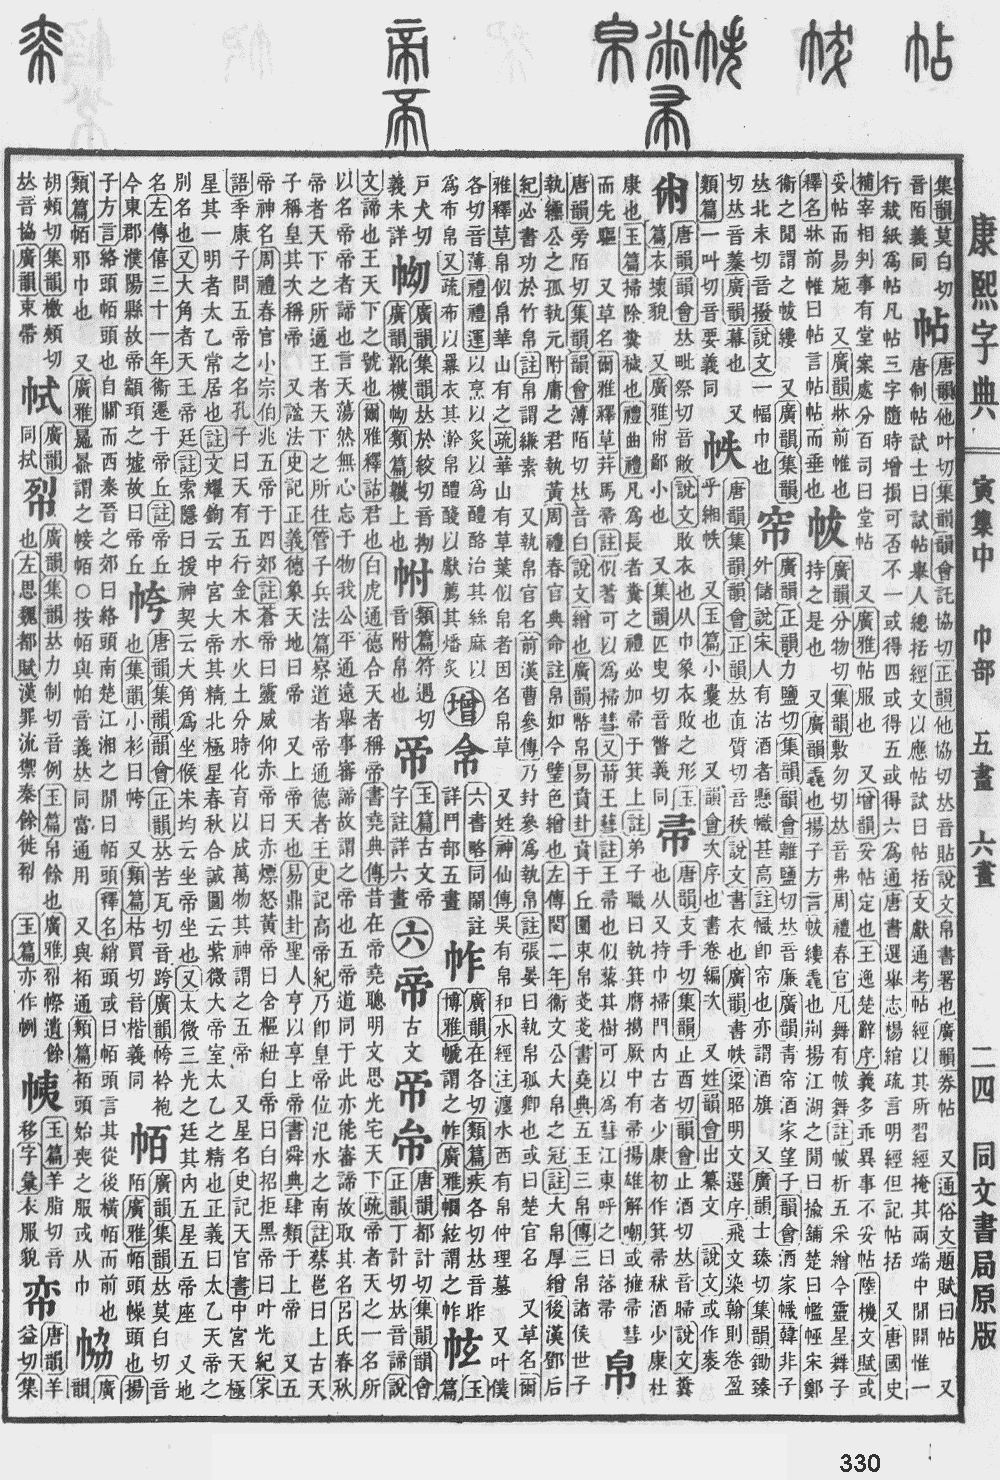 康熙字典 寅集中 巾部 五畫 六畫 二四 同文書局原版
集韻莫白切
音陌義同
帖
唐韻他叶切集韻韻會託協切正韻他協切𠀤音貼說文帛書署也廣韻券帖 又通俗文題賦曰帖 又
唐制帖試士曰試帖舉人總括經文以應帖試日帖括文獻通考帖經以其所習經掩其兩端中閒開惟一
行裁紙為帖凡帖三字隨時增損可否不一或得四或得五或得六為通唐書選舉志楊綰疏言明經但記帖括 又唐國史
補宰相判事有堂案處分百司曰堂帖 又廣雅帖服也 又增韻妥帖定也王逸楚辭序義多乖異事不妥帖陸機文賦或
妥帖而易施 又廣韻牀前帷也
釋名牀前帷曰帖言帖帖而垂也
帗
廣韻分物切集韻敷勿切𠀤音弗周禮春官凡舞有帗舞註帗析五采繒今靈星舞子
持之是也 又廣韻毳也揚子方言帗縷毳也荆揚江湖之閒曰揄鋪楚曰㡮㡛宋鄭
衞之閒謂之帗縷 又廣韻集韻
𠀤北末切音撥說文一幅巾也
帘
廣韻正韻力鹽切集韻韻會離鹽切𠀤音廉廣韻青帘酒家望子韻會酒家幟韓非子
外儲說宋人有沽酒者懸幟甚高註幟卽帘也亦謂酒旗 又廣韻士臻切集韻鋤臻
切𠀤音蓁廣韻幕也 又
類篇一叫切音要義同
帙
唐韻集韻韻會正韻𠀤直質切音秩說文書衣也廣韻書帙梁昭明文選序飛文染翰則卷盈
乎緗帙 又玉篇小囊也 又韻會次序也書卷編次 又姓韻會出纂文 說文或作袠
㡀
唐韻韻會𠀤毗祭切音敝說文敗衣也从巾象衣敗之形玉
篇衣壞貌 又廣雅㡀鄙小也 又集韻匹曳切音瞥義同
帚
唐韻支手切集韻止酉切韻會止酒切𠀤音帚說文糞
也从又持巾埽門內古者少康初作箕帚秫酒少康杜
康也玉篇掃除糞穢也禮曲禮凡為長者糞之禮必加帚于箕上註弟子職曰執箕膺擖厥中有帚揚雄解嘲或擁帚彗
而先驅 又草名爾雅釋草荓馬帚註似蓍可以為掃彗又葥王蔧註王帚也似藜其樹可以為彗江東呼之曰落帚
帛
唐韻旁陌切集韻韻會薄陌切𠀤音白說文繒也廣韻幣帛易賁卦賁于丘園束帛戔戔書堯典五玉三帛傳三帛諸侯世子
執纁公之孤執玄附庸之君執黃周禮春官典命註帛如今璧色繒也左傳閔二年衞文公大帛之冠註大帛厚繒後漢鄧后
紀必書功於竹帛註帛謂縑素 又執帛官名前漢曹參傳乃封參為執帛註張晏曰執帛孤卿也或曰楚官名 又草名爾
雅釋草帛似帛華山有之疏華山有草葉似帛者因名帛草 又姓神仙傳吳有帛和水經注瀍水西有帛仲理墓 又叶僕
各切音薄禮禮運以烹以炙以為醴酪治其絲麻以
為布帛又疏布以羃衣其澣帛醴醆以獻薦其燔炙
增
帠
六書略同闟註
詳鬥部五畫
㡸
廣韻在各切類篇疾各切𠀤音昨
博雅㡋謂之㡸廣雅㡓紘謂之㡸
㡉
玉
篇
戶犬切
義未詳
㡈
廣韻集韻𠀤於絞切音拗
廣韻靴㡈類篇韈上也
㤔
類篇符遇切
音附帛也
帝
玉篇古文帝
字註詳六畫
六
帝
古文
唐韻都計切集韻韻會
正韻丁計切𠀤音諦說
文諦也王天下之號也爾雅釋詁君也白虎通德合天者稱帝書堯典傳昔在帝堯聰明文思光宅天下疏帝者天之一名所
以名帝帝者諦也言天蕩然無心忘于物我公平通遠舉事審諦故謂之帝也五帝道同于此亦能審諦故取其名呂氏春秋
帝者天下之所適王者天下之所往管子兵法篇察道者帝通德者王史記高帝紀乃卽皇帝位汜水之南註蔡邕曰上古天
子稱皇其次稱帝 又諡法史記正義德象天地曰帝 又上帝天也易鼎卦聖人亨以享上帝書舜典肆類于上帝 又五
帝神名周禮春官小宗伯兆五帝于四郊註蒼帝曰靈威仰赤帝曰赤熛怒黃帝曰含樞紐白帝曰白招拒黑帝曰叶光紀家
語季康子問五帝之名孔子曰天有五行金木水火土分時化育以成萬物其神謂之五帝 又星名史記天官書中宮天極
星其一明者太乙常居也註文耀鉤云中宮大帝其精北極星春秋合誠圖云紫微大帝室太乙之精也正義曰太乙天帝之
別名也又大角者天王帝廷註索隱曰援神契云大角為坐候朱均云坐帝坐也又太微三光之廷其內五星五帝座 又地
名左傳僖三十一年衞遷于帝丘註帝丘
今東郡濮陽縣故帝顓頊之墟故曰帝丘
㡁
唐韻集韻韻會正韻𠀤苦瓦切音跨廣韻㡁衿袍
也集韻小衫曰㡁 又類篇枯買切音楷義同
帞
廣韻集韻𠀤莫白切音
陌廣雅帞頭幧頭也揚
子方言絡頭帞頭也自關而西秦晉之郊曰絡頭南楚江湘之閒曰帞頭釋名綃頭或曰帞頭言其從後橫帞而前也廣
類篇帞邪巾也 又廣雅㡘㡡謂之㡔帞○按帞與帕音義𠀤同當通用 又與袹通類篇袹頭始喪之服或从巾
㡇
韻
胡頰切集韻檄頰切
𠀤音協廣韻束帶
帋
廣韻
同拭
㡂
廣韻集韻𠀤力制切音例玉篇帛餘也廣雅㡂幯遺餘
也左思魏都賦漢罪流禦秦餘徙㡂 玉篇亦作栵
㡅
玉篇羊脂切音
移字彙衣服貌
帟
唐韻羊
益切集
330